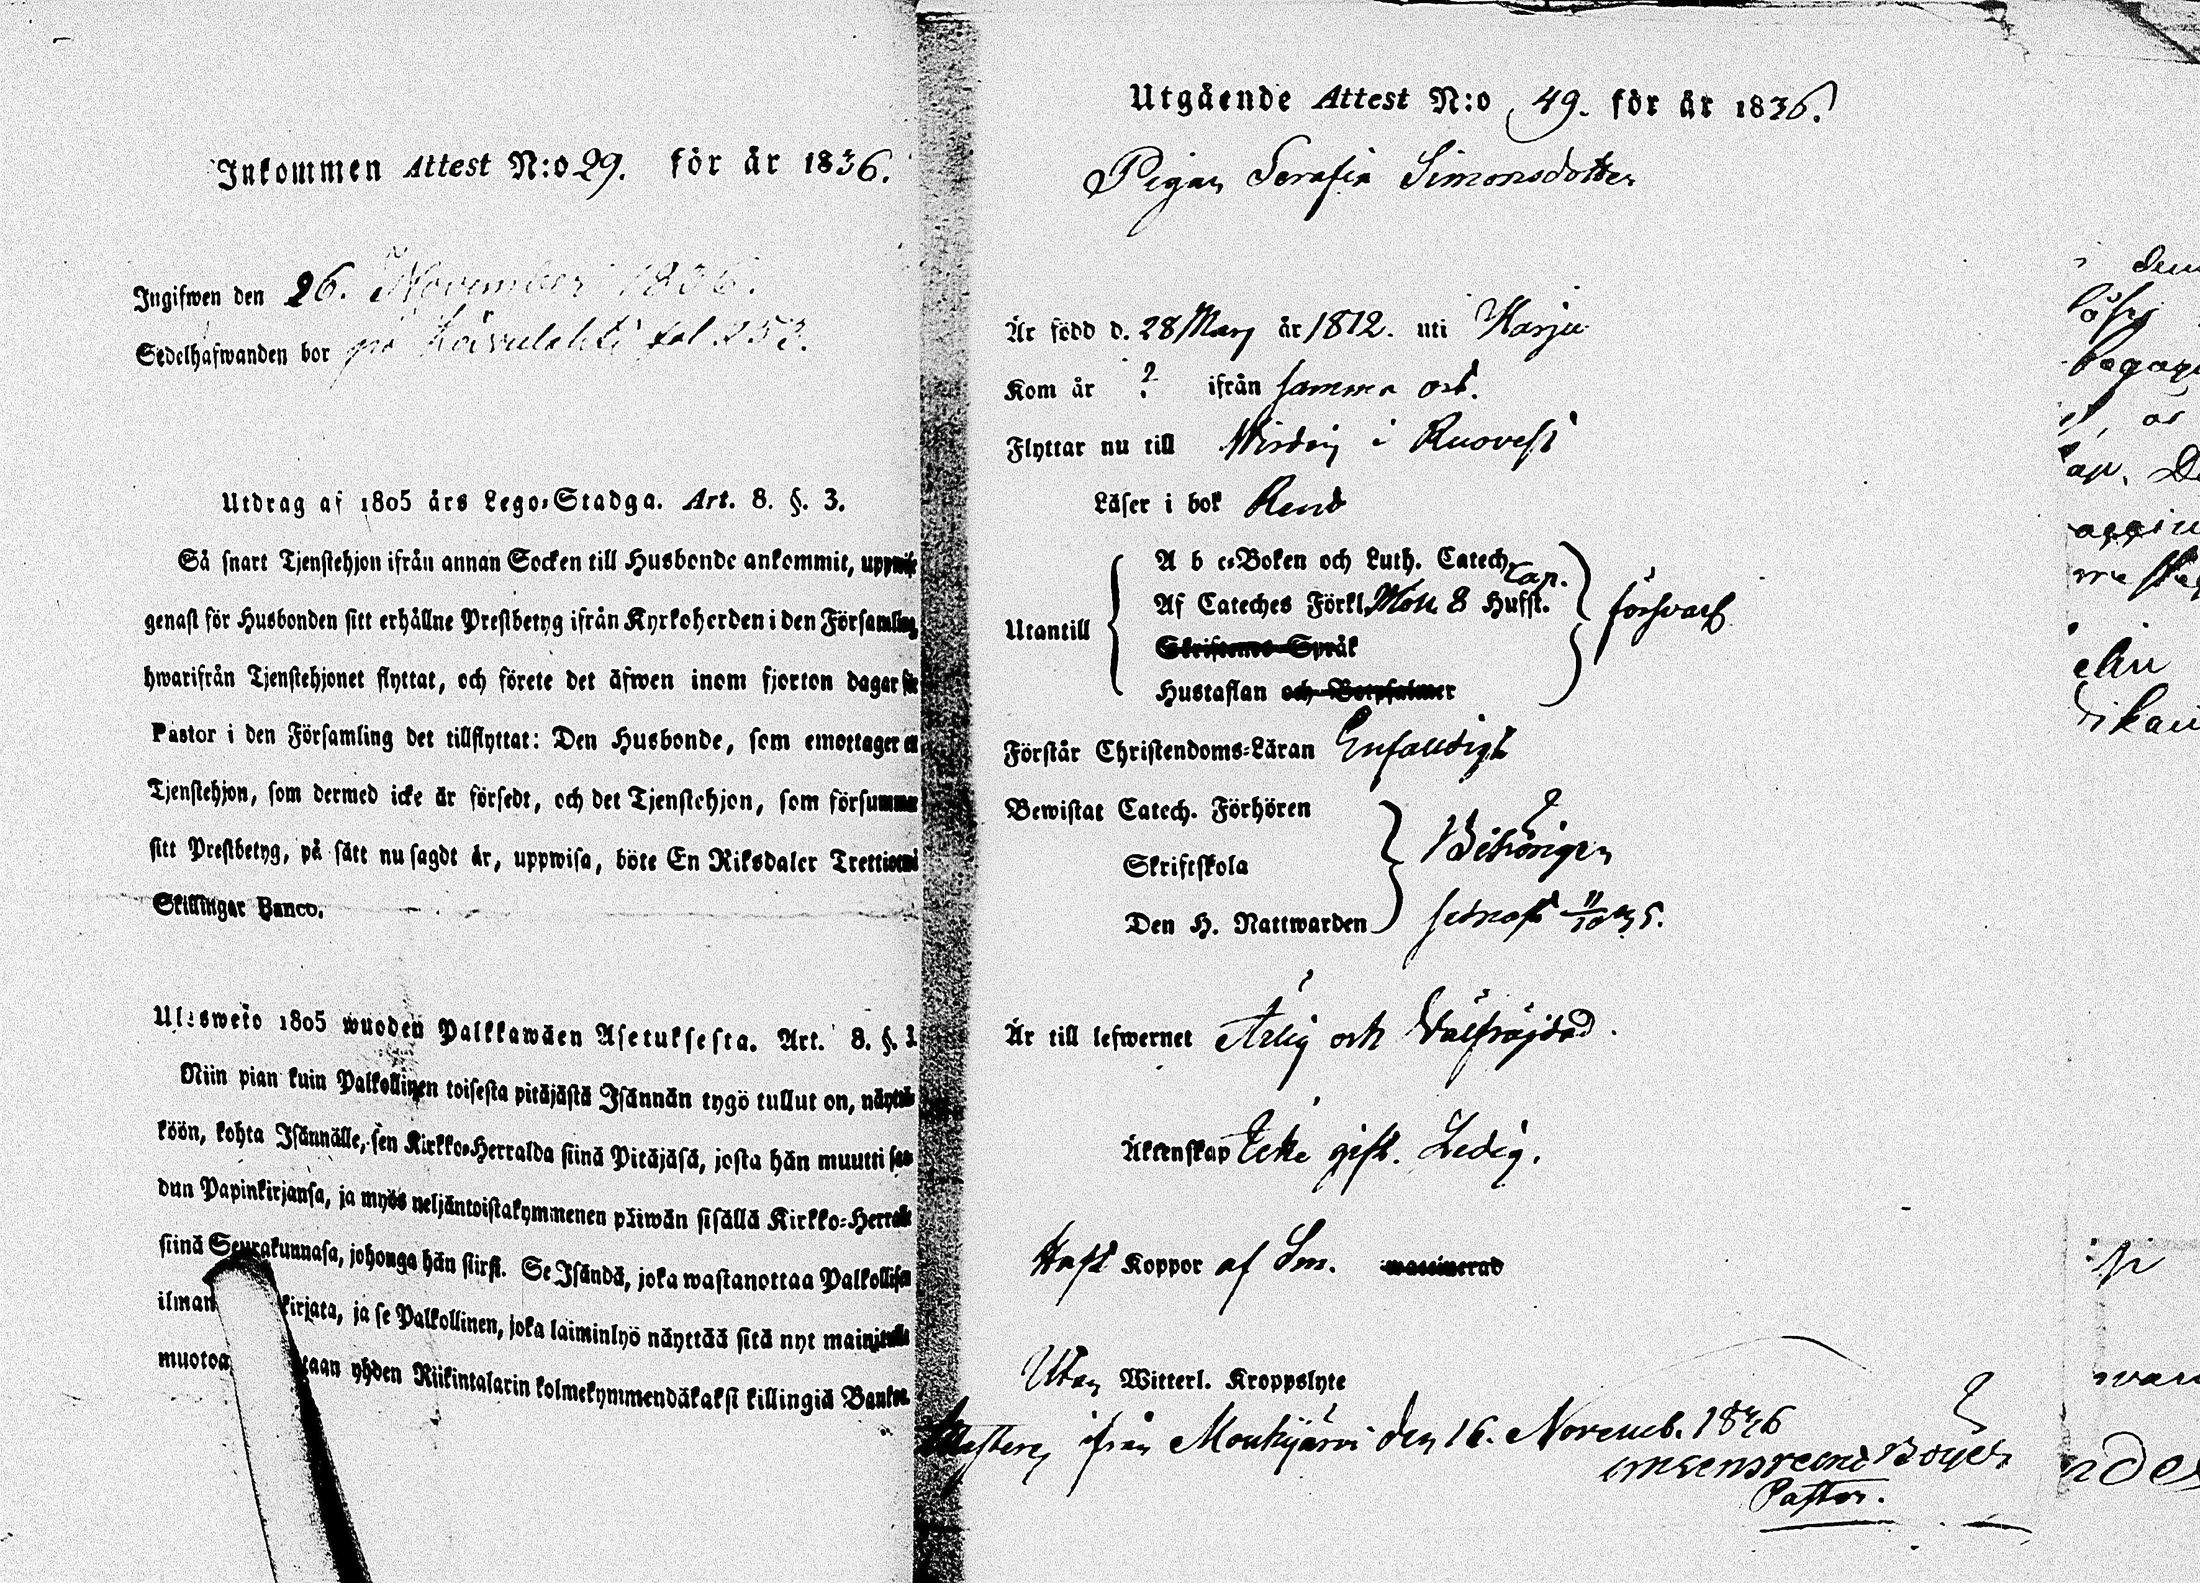 Inkommen Attest N:o 29. för år 1836.
Ingifwen den 26. November 1836.
Sedelhafwanden bor på fol. 253.
Utdrag af 1805 års Lego-Stadga. Art. 8. §. 3.
Så snart Tjenstehjon ifrån annan Socken till Husbonde ankommit, uppwise
genast för Husbonden sitt erhållne Prestbetyg ifrån Kyrkoherden i den Församling
hwarifrån Tjenstehjonet flyttat, och förete det äfwen inom fjorton dagar för
Pastor i den Församling det tillflyttat: Den Husbonde, som emottager ett
Tjenstehjon, som dermed icke är försedt, och det Tjenstehjon, som försummar
sitt Prestbetyg, på sätt nu sagdt är, uppwisa, böte En Riksdaler Trettiotwå
Skillingar Banco.
Ulosweto 1805 wuoden Palkkawäen Asetuksesta. Art. 8. §. 3
Niin pian kuin Palkollinen toisesta pitäjästä Isännän tygö tullut on, näyttä-
köön, kohta Isännälle, sen Kirkko-Herralda siinä Pitäjäsä, josta hän muutti saa-
dun Papinkirjansa, ja myös neljäntoistakymmenen päiwän sisällä Kirkko-Herralle
siinä Seurakunnasa, johonga hän siirsi. Se Isändä, joka wastanottaa Palkollisen
ilman kirjata, ja se Palkollinen, joka laiminlyö näyttää sitä nyt mainitulla
muotoa taan yhden Riikintalarin kolmekymmendäkaksi killingiä Banko.
Utgående Attest N:o 49. för år 1836.
Pigan Serafia Simonsdotter
Är född d. 28 Marz år 1812. uti Karju
Kom år ? ifrån samma ort.
Flyttar nu till Wirdois i Ruovesi
Läser i bok Rent
Utantill
A b c-Boken och Luth. Catech.
Af Cateches Förkl. Moll. 8 Cap. Hufst.
Skriftenes Språk
Hustaflan och Botpsalmer
försvarl.
Förstår Christendoms-Läran Enfaldigt
Bewistat Catech. Förhören
Skriftskola
Den H. Nattwarden
Behörigen
senast 11/10 35.
Är till lefwernet Ärlig och Välfräjdad.
Äktenskap Icke gift. Ledig.
Haft Koppor af Sm. waccinerad
Utan Witterl. Kroppslyte
ifrån Mouhijärvi den 16. Novemb. 1836
Pastor.